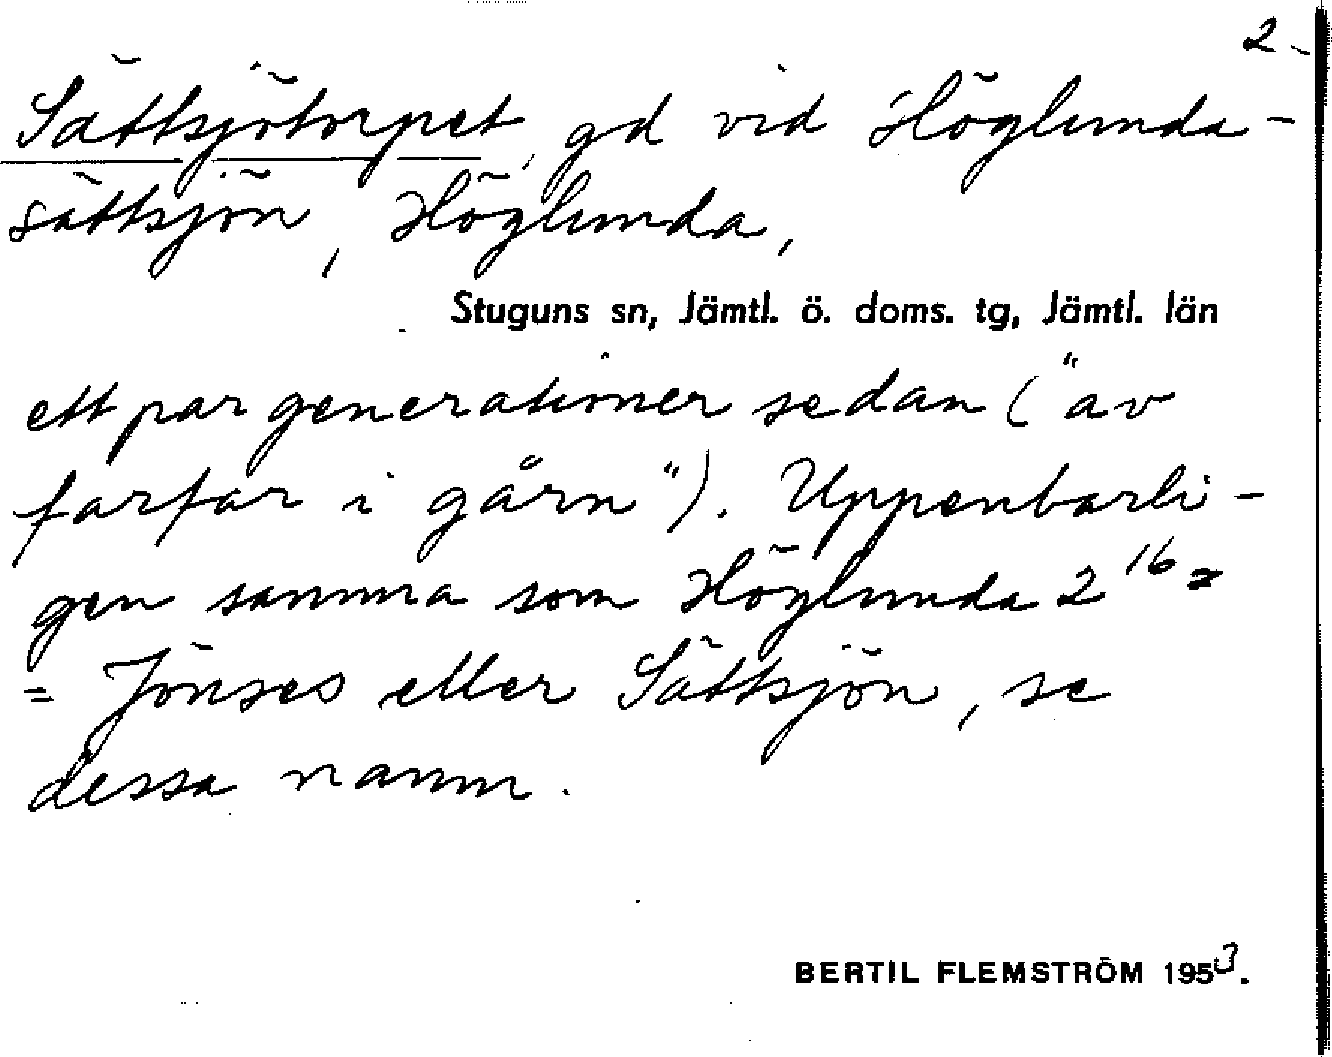 2.
Sättsjötorpet, gd vid Höglunda-
sättsjön, Höglunda,
Stuguns sn, Jämtl. ö. doms. tg, Jämtl. län
ett par generationer sedan ("av
farfar i gårn"). Uppenbarli-
gen samma som Höglunda 2 16 =
= Jönses eller Sättsjön, se
dessa namn.
BERTIL FLEMSTRÖM 1953.